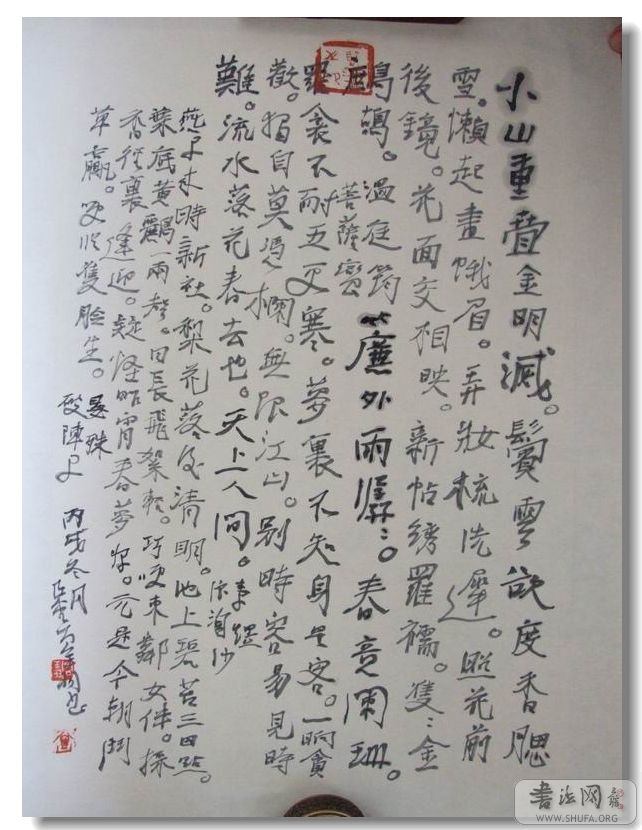 小山重疊金明滅。鬢雲欲度香腮
雪。懶起畫蛾眉。弄妝梳洗遲。照花前
後鏡。花面交相映。新帖绣羅襦。雙〻金
鷓鴣。温庭筠
菩薩蠻
簾外雨潺〻。春意闌珊。
羅衾不耐五更寒。夢裏不知身是客。一晌貪
歡。獨自莫憑欄。無限江山。别時容易見時
難。流水落花春去也。天上人間。李煜
浪淘沙
燕子來時新社。梨花落後清明。池上碧苔三四點。
葉底黄鸝一兩聲。日長飛絮輕。巧笑東鄰女伴。採
香徑裏逢迎。疑怪昨宵春夢好。元是今朝鬥
草贏。笑從雙臉生。晏殊
破陣子
丙戌冬月
书法网
WWW.SHUFA.ORG